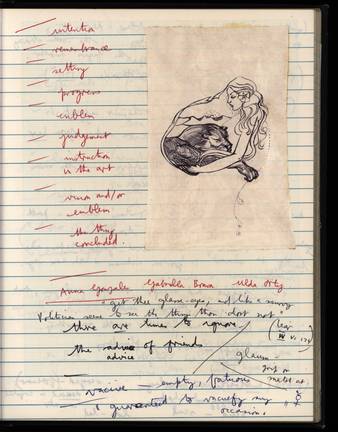 intention
remembrance
setting
progress
emblem
judgement
instruction
in the art
vision and/or
emblem
the thing
concluded.
Anna Gonzalez Gabriella Brava Ulda Ortiz
"get thee glass-eyes, and like a scurvy
Politician seem to see the things thou dost not"
there are times to ignore (Lear
IV vi 170)
the advice of friends
advice
glaum—
vacive — empty, fatuous
guaranteed to vacuefy my
occasion,